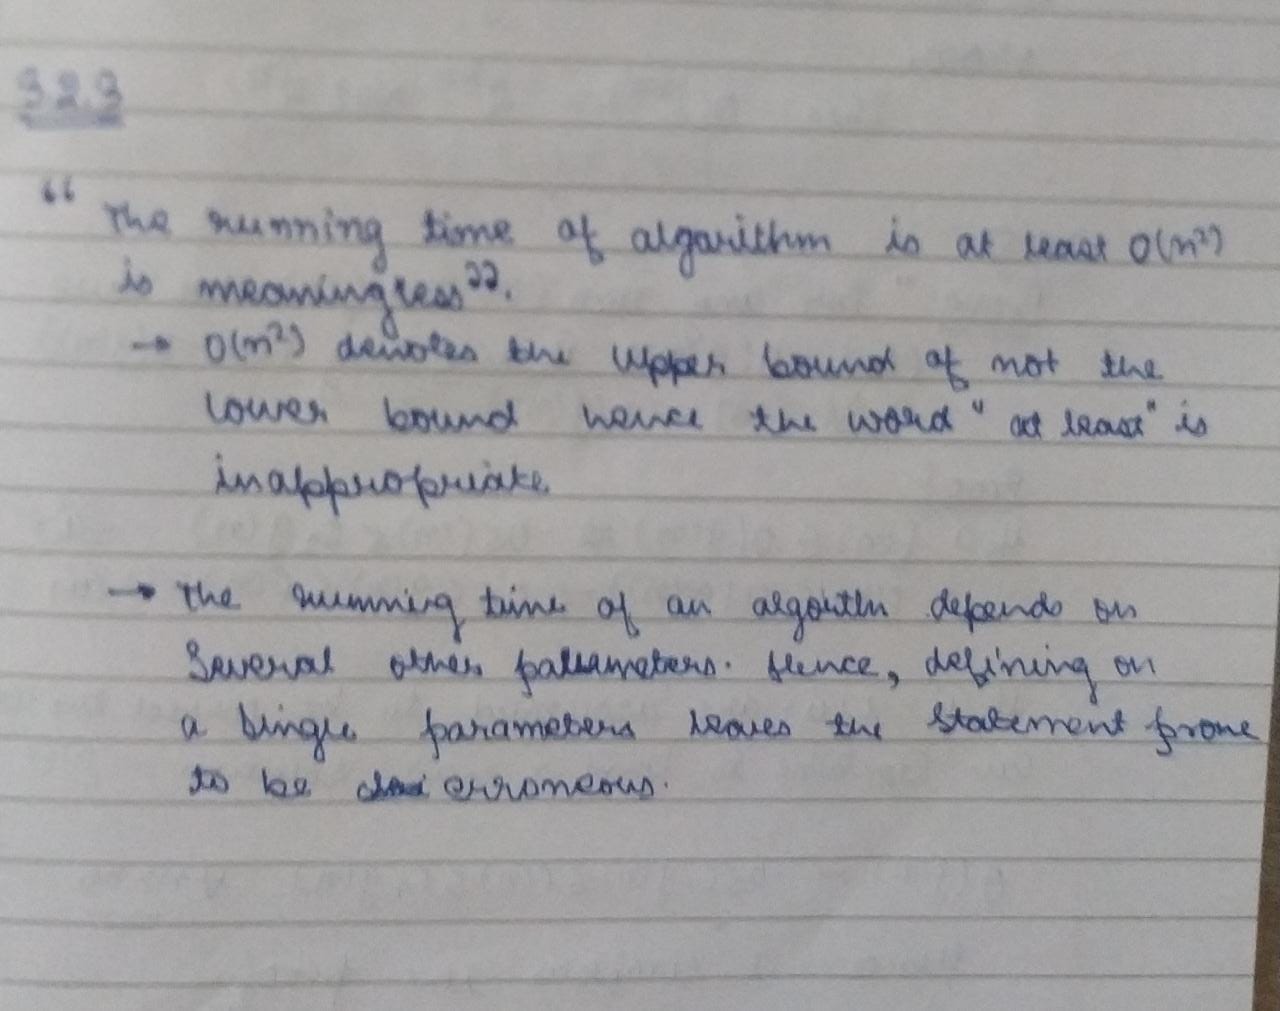 3.2.3
“ The running time of algorithm is at least O(n²)
is meaningless”.
→ O(n²) denotes the upper bound of not the
lower bound hence the word "at least" is
inappropriate.
→ The running time of an algorithm depends on
Several other parameters. Hence, defining on
a single parameters leaves the statement prone
to be erroneous.